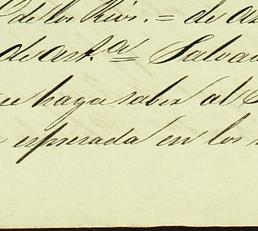 de los Rios. = de a
de art.ª = Salva
se haga saber al
espresada en los